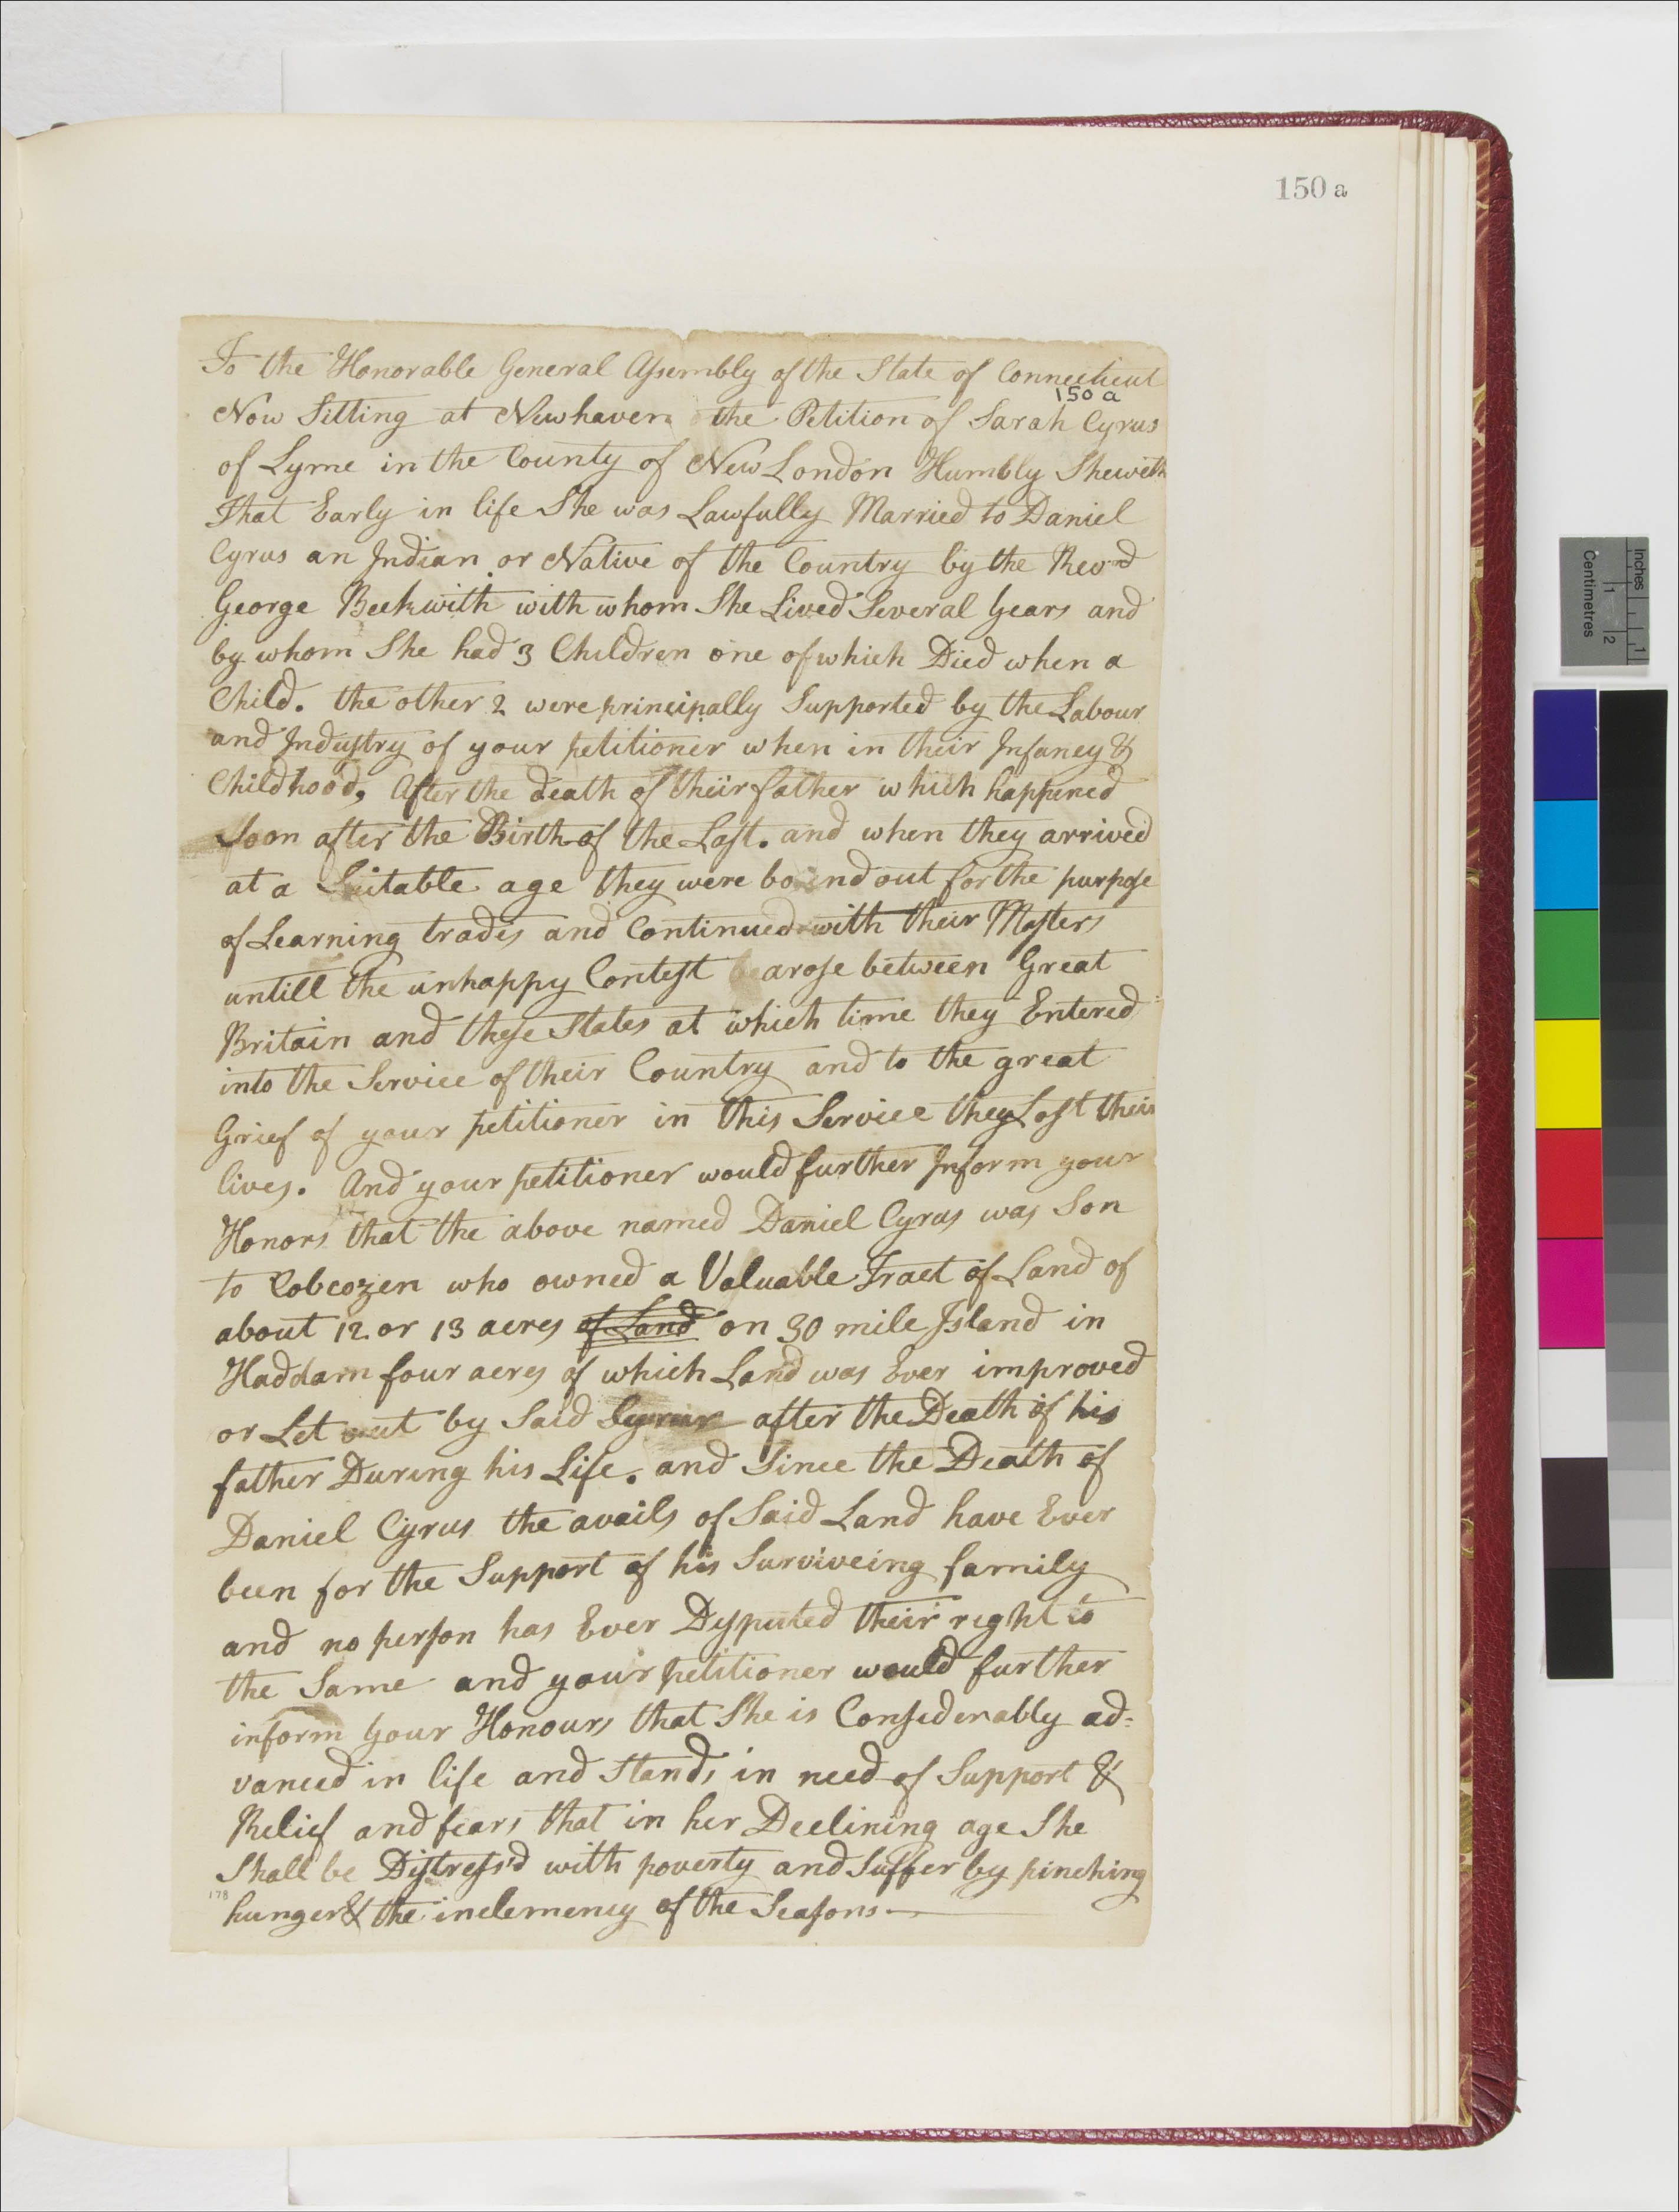 150 a
To the Honorable General Assembly of the State of Connecticut
150 a
Now Sitting at Newhaven the Petition of Sarah Cyrus
of Lyme in the County of New London Humbly Sheweth
That Early in life She was Lawfully Married to Daniel
Cyrus an Indian or Native of the Country by the Revd
George Beckwith with whom She Lived Several Years and
by whom She had 3 Children one of which Died when a
Child. the other 2 were principally Supported by the Labour
and Industry of your petitioner when in their Infancy &
Childhood, After the death of their father which happened
Soon after the Birth of the Last. and when they arrived
at a Suitable age they were bound out for the purpose
of Learning trades and Continued with their Masters
untill the unhappy Contest arose between Great
Britain and these States at which time they Entered
into the Service of their Country and to the great
Grief of your petitioner in this Service they Lost their
lives. And your petitioner would further Inform your
Honors that the above named Daniel Cyrus was Son
to Cobcozen who owned a Valuable Tract of Land of
about 12 or 13 acres of Land on 30 mile Island in
Haddam four acres of which Land was Ever improved
or Let out by Said Cyrus after the Death of his
father During his Life. and Since the Death of
Daniel Cyrus the avails of Said Land have Ever
been for the Support of his Surviveing family
and no person has Ever Disputed their right to
the Same and your petitioner would further
inform your Honours that She is Considerably ad=
vanced in life and Stands in need of Support &
Relief and fears that in her Declining age She
Shall be Distress'd with poverty and Suffer by pinching
178
hunger & the inclemency of the Seasons—
Inches
1
Centimetres
1 2